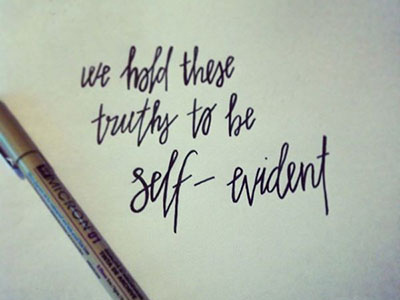 we hold these
truths to be
self-evident
MICRON 01